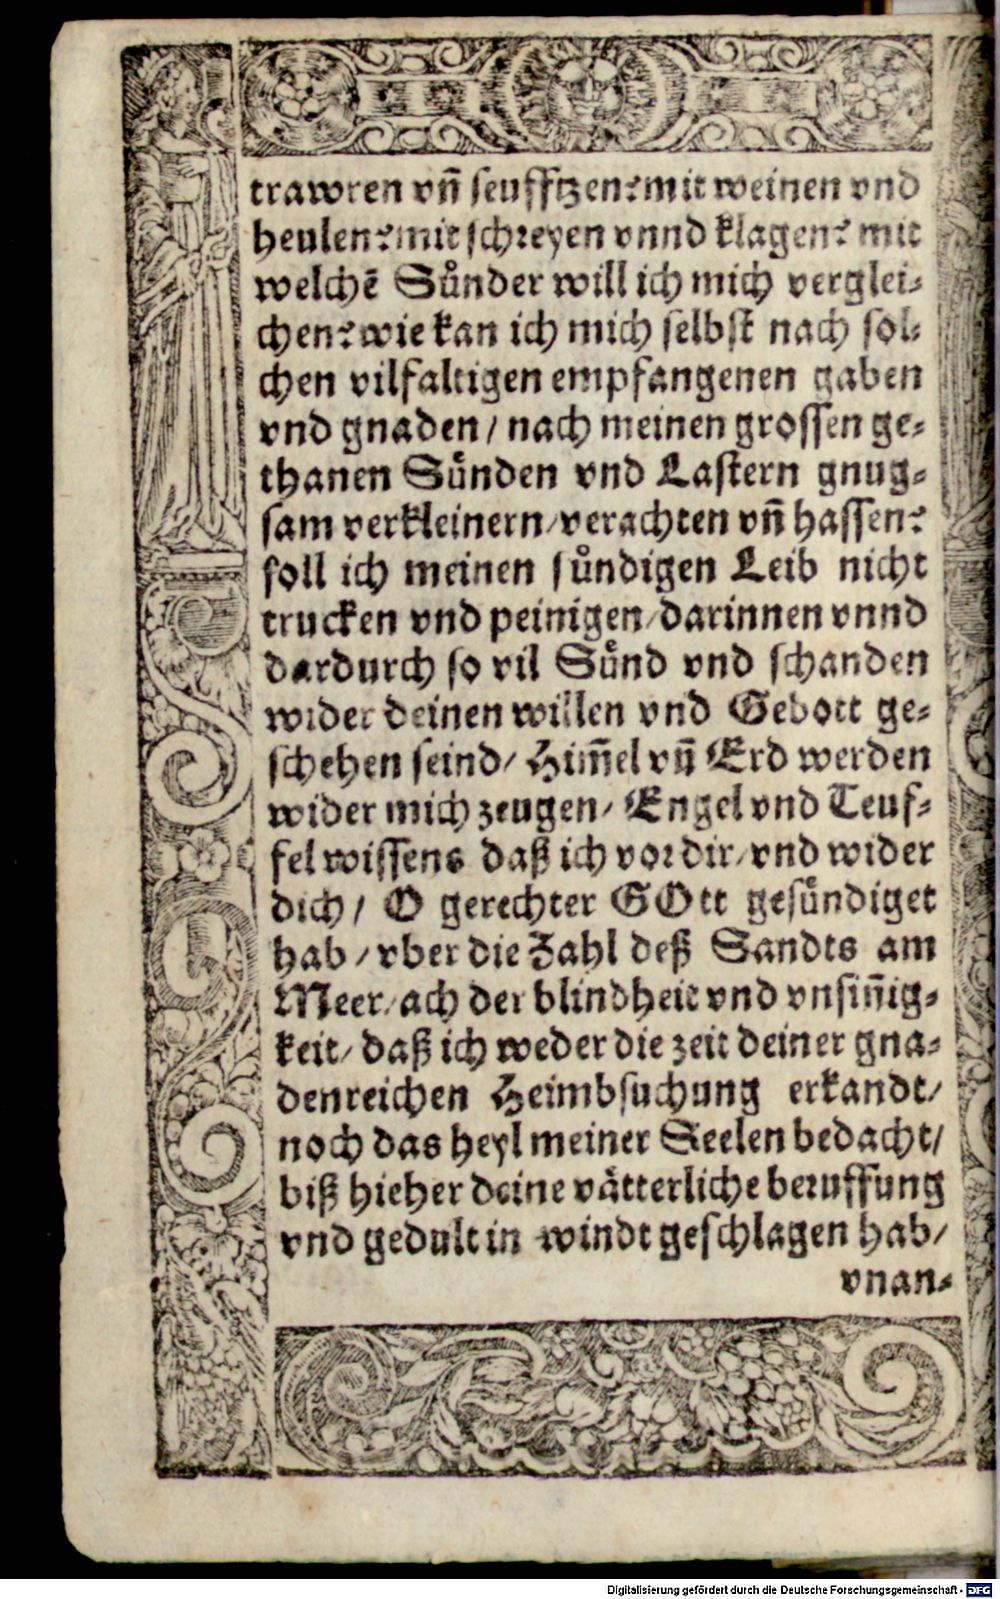 trawren vñ seufftzen? mit weinen vnd
heulen? mit schreyen vnnd klagen? mit
welchē Sůnder will ich mich verglei-
chen? wie kan ich mich selbst nach sol-
chen vilfaltigen empfangenen gaben
vnd gnaden / nach meinen grossen ge-
thanen Sůnden vnd Lastern gnug-
sam verkleinern / verachten vñ hassen?
soll ich meinen sůndigen Leib nicht
trucken vnd peinigen / darinnen vnnd
dardurch so vil Sůnd vnd schanden
wider deinen willen vnd Gebott ge-
schehen seind / Him̃el vñ Erd werden
wider mich zeugen / Engel vnd Teuf-
fel wissens daß ich vor dir / vnd wider
dich / O gerechter GOtt gesůndiget
hab / vber die Zahl deß Sandts am
Meer / ach der blindheit vnd vnsiñig-
keit / daß ich weder die zeit deiner gna-
denreichen Heimbsuchung erkandt /
noch das heyl meiner Seelen bedacht /
biß hieher deine vätterliche beruffung
vnd gedult in windt geschlagen hab /
vnan-
Digitalisierung gefördert durch die Deutsche Forschungsgemeinschaft - DFG